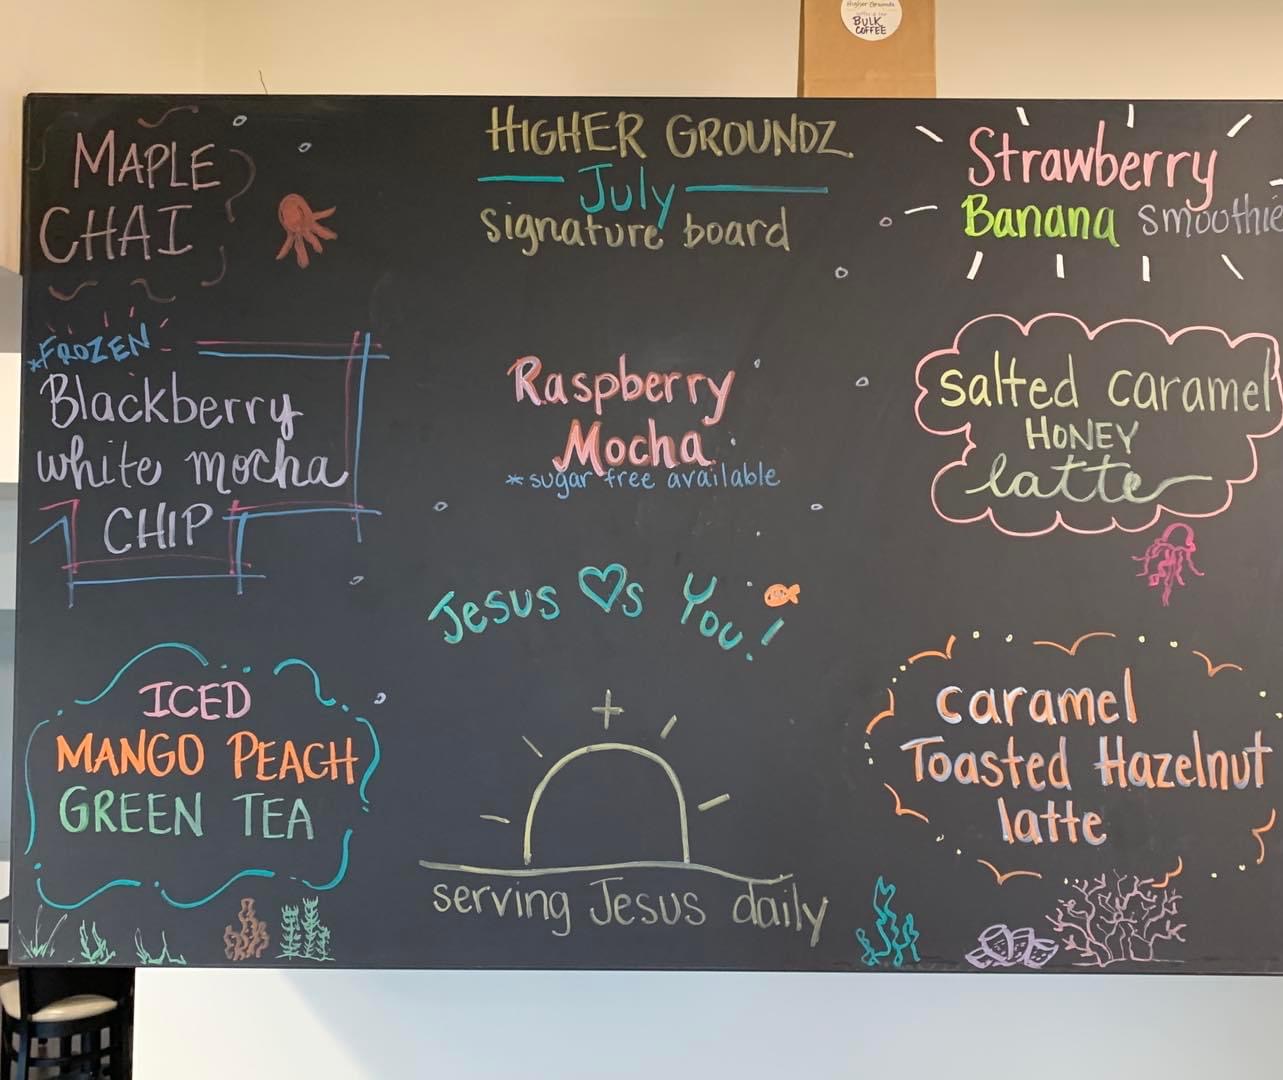 Higher Grounds
BULK
COFFEE
HIGHER GROUNDZ
July
signature board
MAPLE
CHAI
Strawberry
Banana smoothie
*FROZEN
Blackberry
white mocha
CHIP
Raspberry
Mocha
*sugar free available
salted caramel
HONEY
latte
Jesus ♡s You!
ICED
MANGO PEACH
GREEN TEA
caramel
Toasted Hazelnut
latte
serving Jesus daily